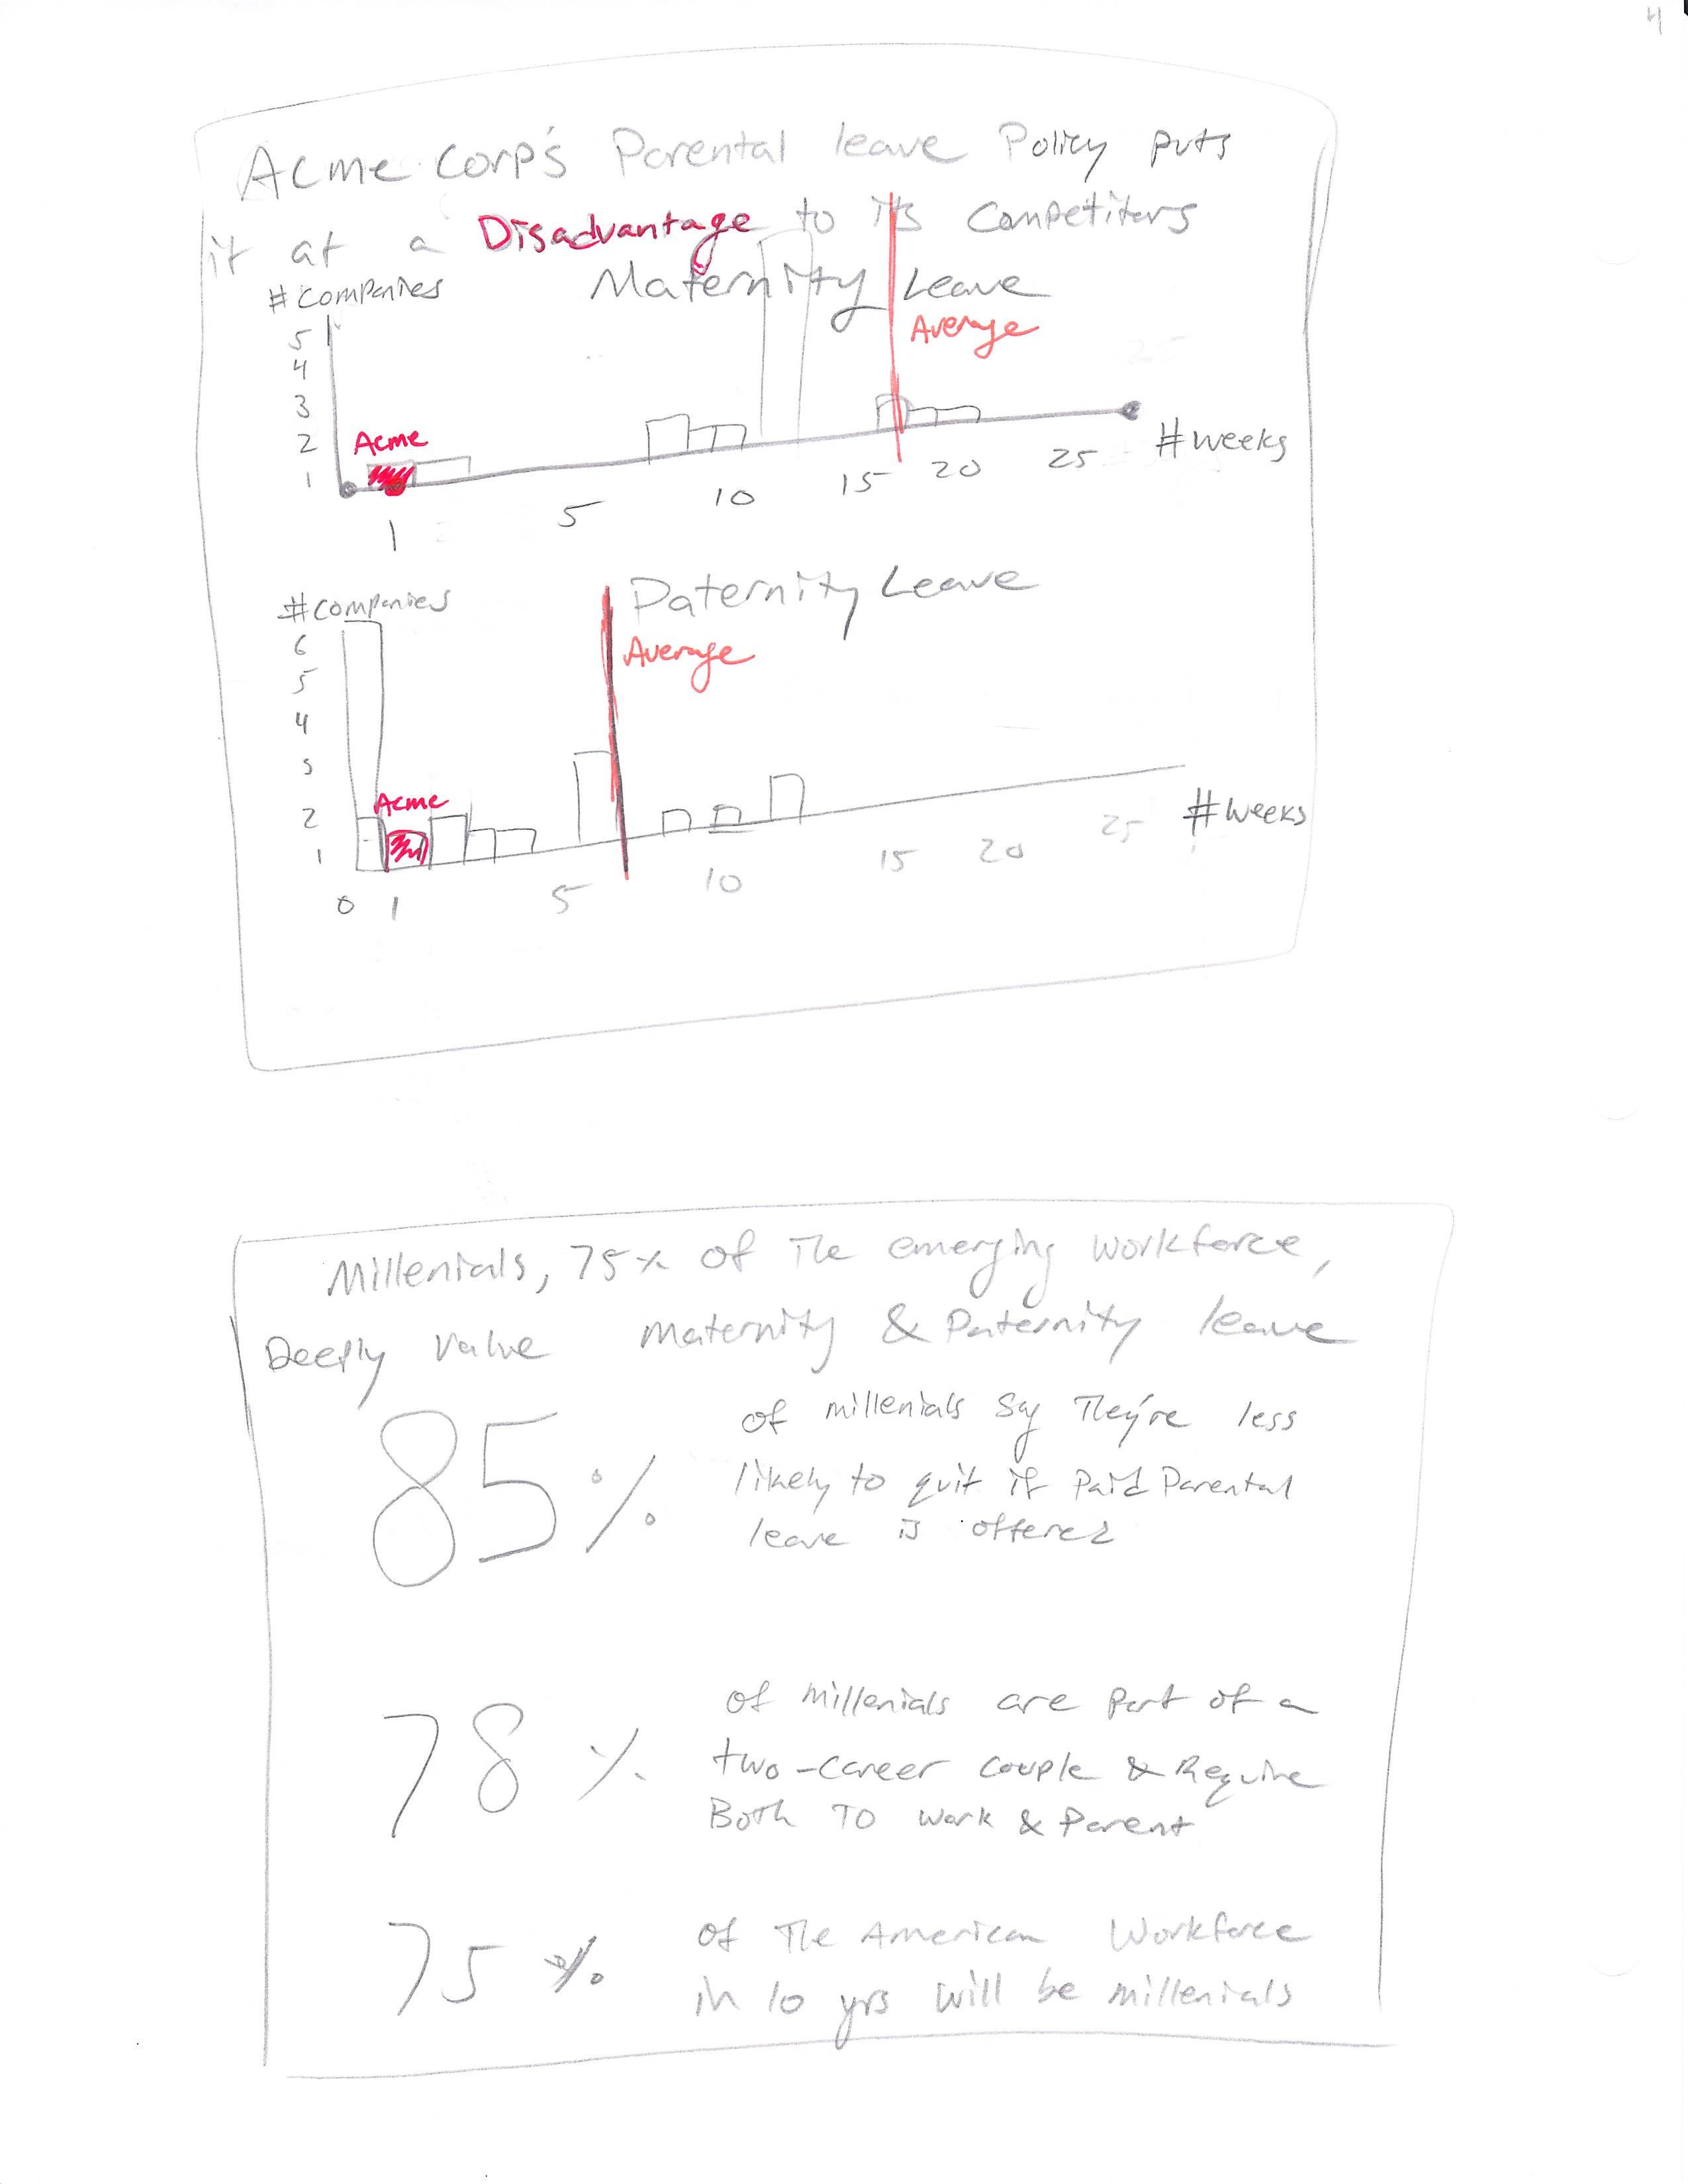 4
Acme Corp's Parental leave Policy puts
it at a Disadvantage to its Competitors
# Companies
Maternity Leave
Average
5
4
3
2
1
Acme
1
5
10
15
20
25
# weeks
# companies
Paternity Leave
Average
6
5
4
3
2
1
Acme
0
1
5
10
15
20
25
# weeks
Millenials, 75% of The emerging workforce,
Deeply value maternity & Paternity leave
85%
of millenials say They're less
likely to quit if paid Parental
leave is offered
78%
of millenials are part of a
two-career couple & Require
Both To work & Parent
75%
of The American Workforce
in 10 yrs will be millenials